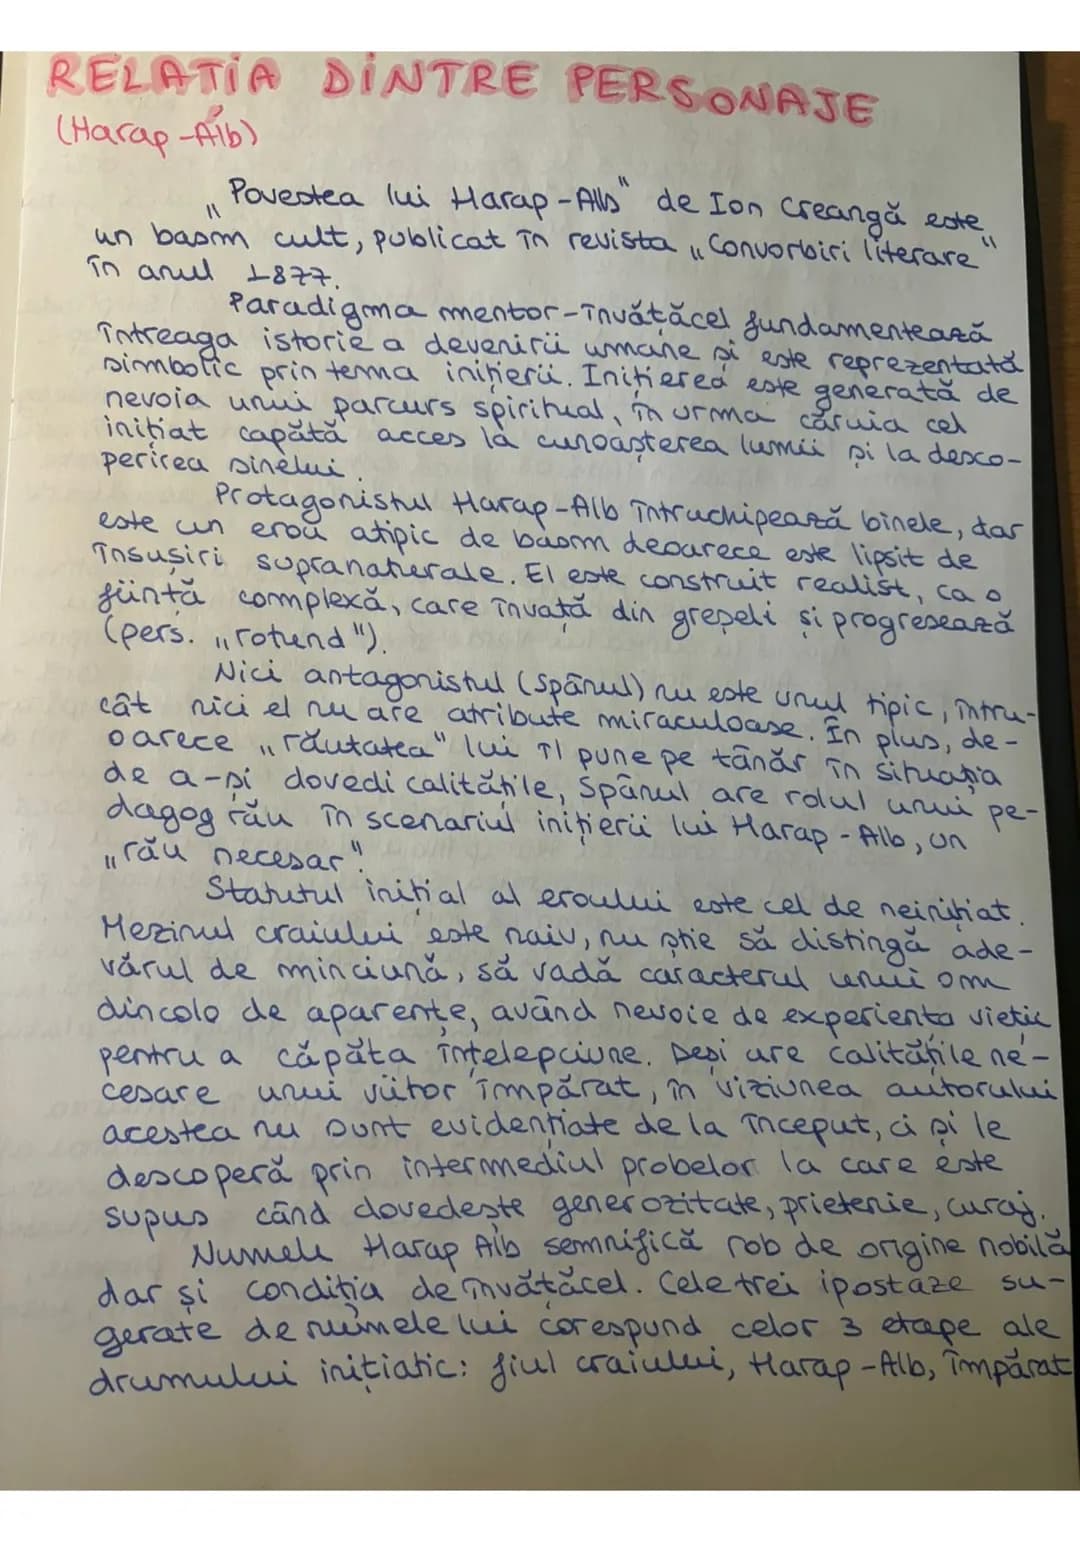 RELATIA DINTRE PERSONAJE
(Harap-Alb)
„Povestea lui Harap-Alb" de Ion Creangă este
un basm cult, publicat în revista „Convorbiri literare"
în anul 1877.
Paradigma mentor-învățăcel fundamentează
întreaga istorie a devenirii umane și este reprezentată
simbolic prin tema inițierii. Inițierea este generată de
nevoia unui parcurs spiritual, în urma căruia cel
inițiat capătă acces la cunoașterea lumii și la desco-
perirea sinelui.
Protagonistul Harap-Alb întruchipează binele, dar
este un erou atipic de basm deoarece este lipsit de
însușiri supranaturale. El este construit realist, ca o
ființă complexă, care învață din greșeli și progresează
(pers. „rotund").
Nici antagonistul (Spânul) nu este unul tipic, întru-
cât nici el nu are atribute miraculoase. În plus, de-
oarece „răutatea" lui îl pune pe tânăr în situația
de a-și dovedi calitățile, Spânul are rolul unui pe-
dagog rău în scenariul inițierii lui Harap-Alb, un
„rău necesar".
Statutul inițial al eroului este cel de neinițiat.
Mezinul craiului este naiv, nu știe să distingă ade-
vărul de minciună, să vadă caracterul unui om
dincolo de aparențe, având nevoie de experiența vieții
pentru a căpăta înțelepciune. Deși are calitățile ne-
cesare unui viitor împărat, în viziunea autorului
acestea nu sunt evidențiate de la început, ci și le
descoperă prin intermediul probelor la care este
supus când dovedește generozitate, prietenie, curaj.
Numele Harap Alb semnifică rob de origine nobilă
dar și condiția de învățăcel. Cele trei ipostaze su-
gerate de numele lui corespund celor 3 etape ale
drumului inițiatic: fiul craiului, Harap-Alb, împărat